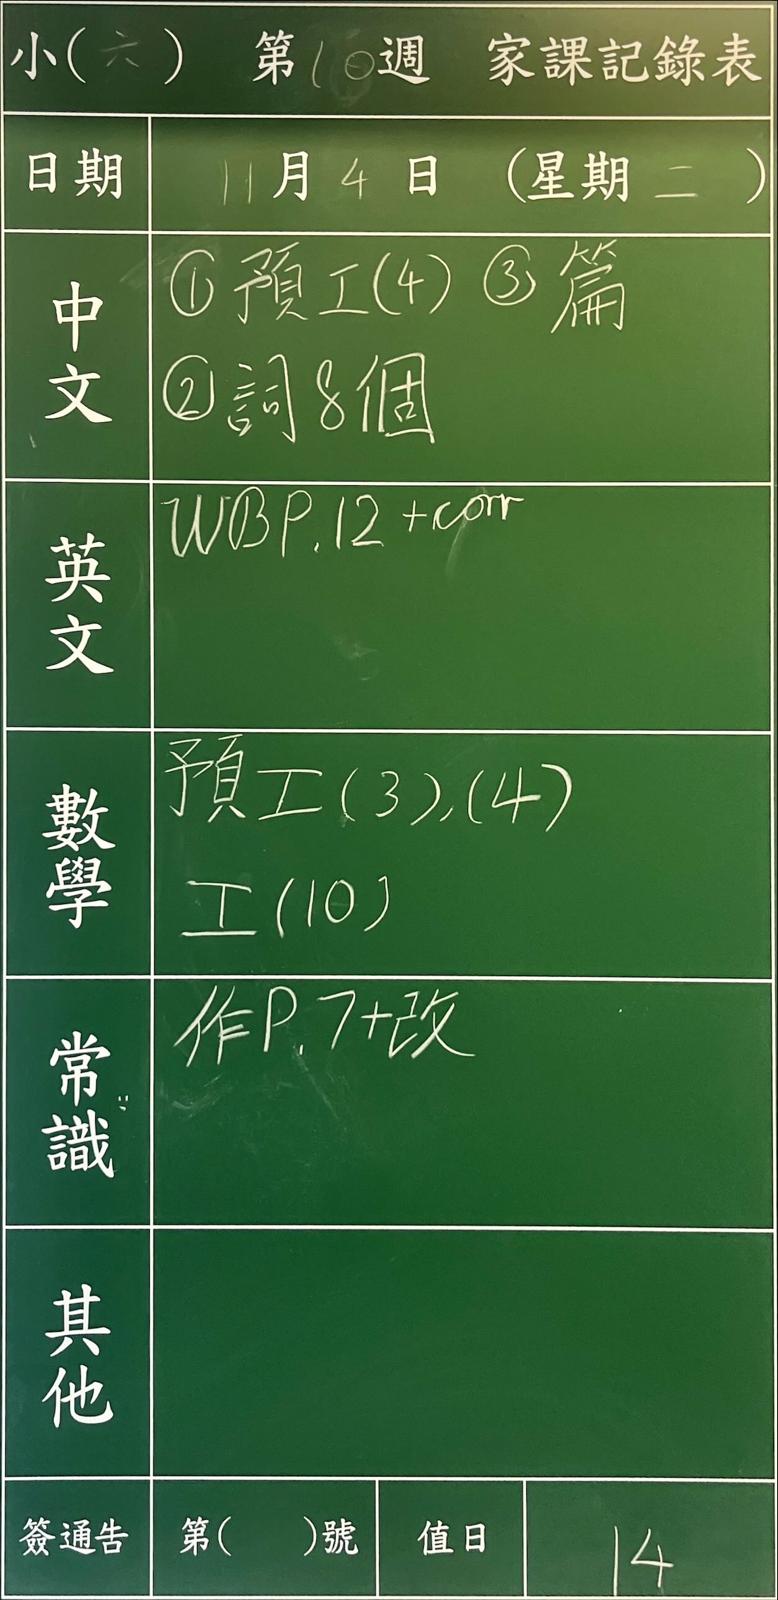 小(六) 第10週 家課記錄表
日期 11月4日 (星期二)
中文 ①預工(4) ③篇
②詞8個
英文 WB P.12 +corr
數學 預工(3),(4)
工(10)
常識 作P.7+改
其他
簽通告 第( )號 值日 14